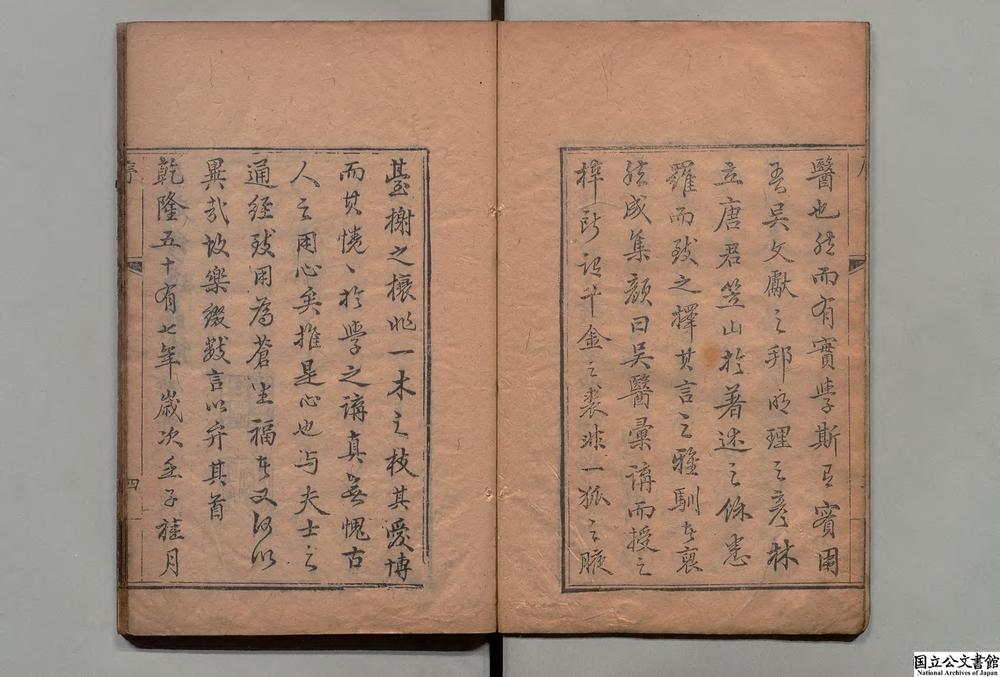 醫也然而有實學斯有實用
吾吳文獻之邦明理之彥林
立唐君笠山於著述之餘悉
羅而致之擇其言之雅馴者裒
然成集顏曰吳醫彙講而授之
梓所謂千金之裘非一狐之腋
臺榭之榱非一木之枝其愛博
而其惓〻於學之講真無愧古
人之用心矣推是心也與夫士之
通經致用為蒼生福者又何以
異哉故樂綴數言以弁其首
乾隆五十有七年歲次壬子桂月
序
四
国立公文書館
National Archives of Japan